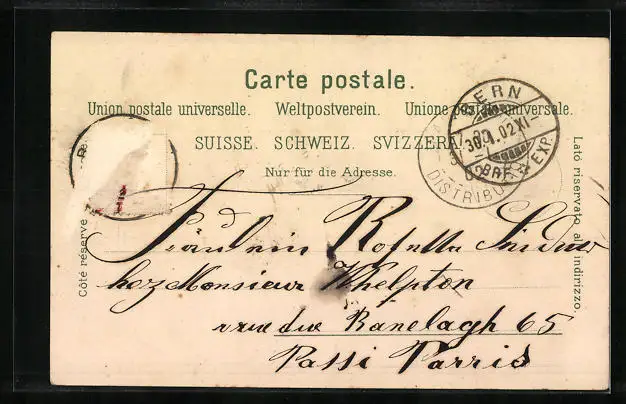 Carte postale.
Union postale universelle. Weltpostverein. Unione postale universale.
SUISSE. SCHWEIZ. SVIZZERA.
Nur für die Adresse.
Côté réservé
Lato riservato all'indirizzo.
BERN
XI
BRF. EXP.
DISTRIBU
Fräulein Rosella
hoz Monsieur Whelpton
vrue due Ranelagh 65
Passi Parris